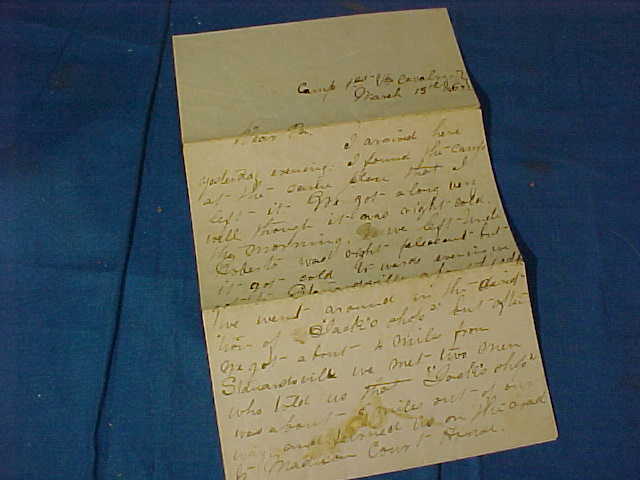 Camp 1st Va Cavalry
March 15th
Dear Pa.
I arrived here
yesterday evening. I found the camp
at the same place that I
left it We got along very
well though it was right cold
the morning we left Uncle
Roberts was right pleasant but
it got cold towards evening we
Stanardsville about
We went around in the direct-
tion of "Jack's shop" but after
we got about 4 miles from
Stanardsville we met two men
who told us that "Jack's shop"
was about miles out of our
way and turned us on the road
to Madison Court House.